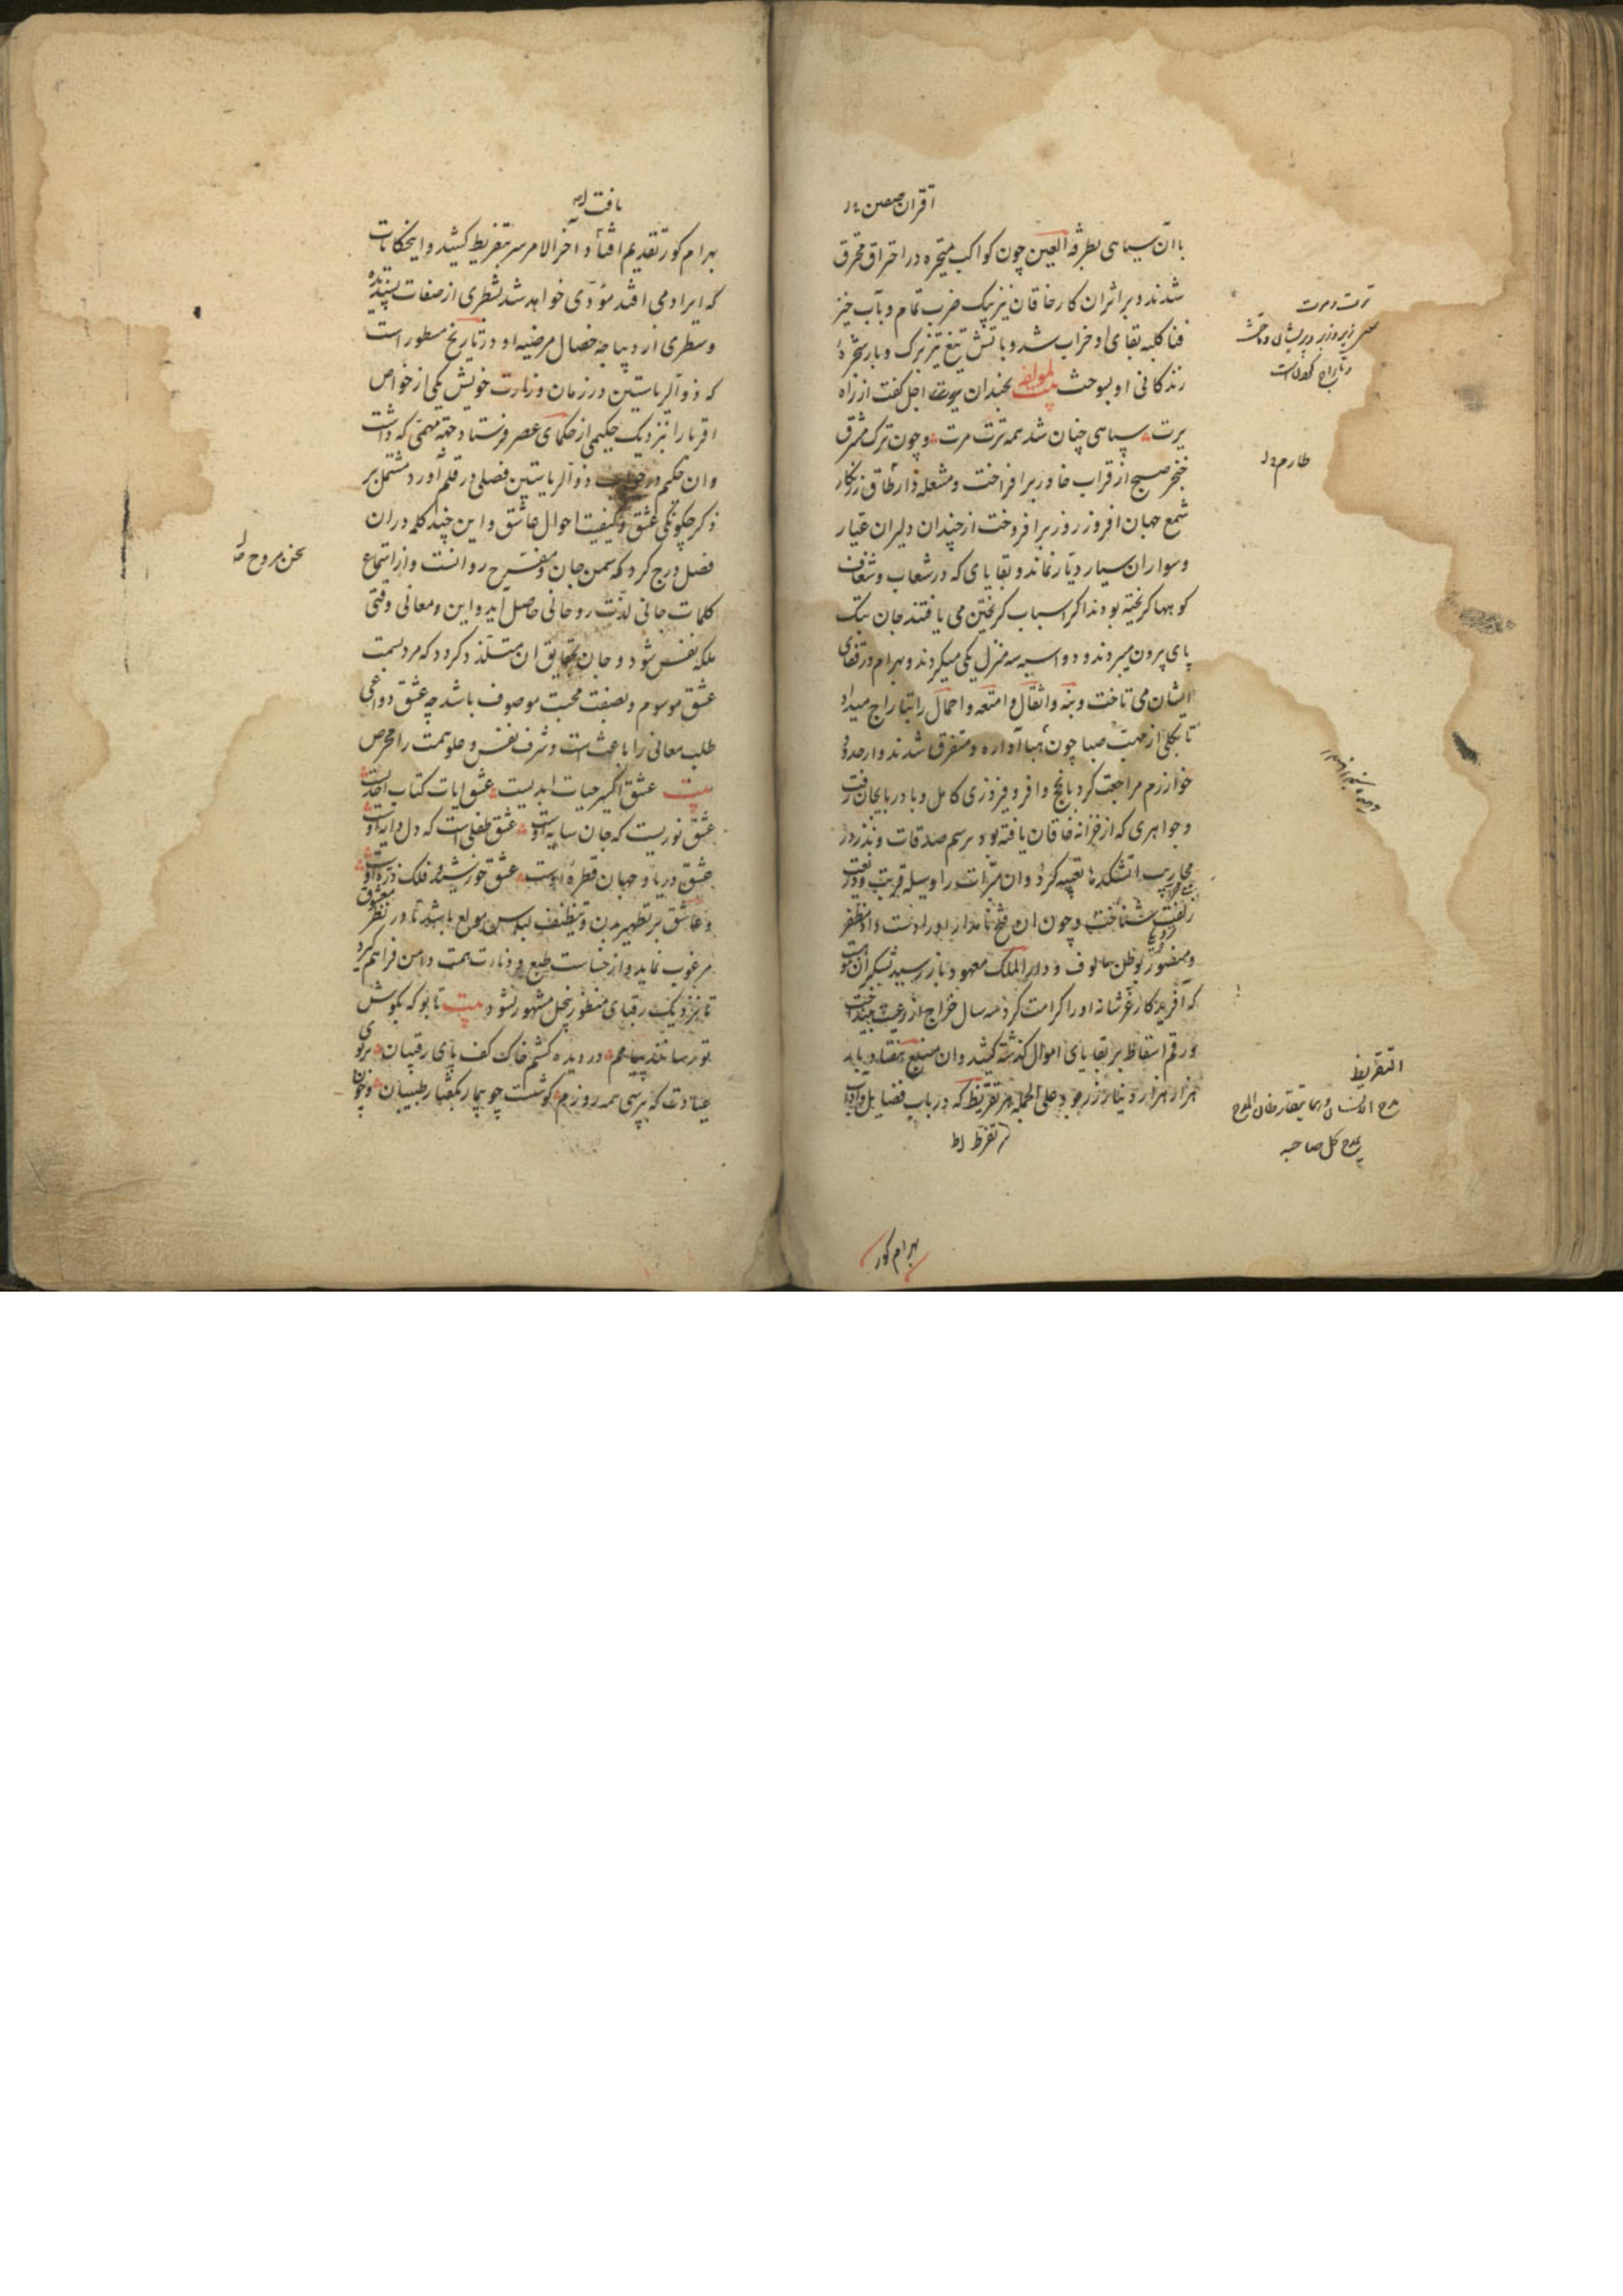 اقران صفین
باآن سپاهی بطرفة العین چون کواکب متحیره در احتراق محترق
شدند و بر اثر ان کار خاقان نیز بیک ضرب تمام و بآب خیز
فنا کلبه بقای او خراب شد و باتش تیغ تیز برک و بار شجرهٔ
زندکانی او بسوخت لمولفه بیت بخندان اجل کفت از راه
سپاهی چنان شد همه ترت مرت وچون ترک مشرق
خنجر صبح از قراب خاور برافراخت و مشعله دار طاق زرنکار
شمع جهان افروز روز برافروخت از چندان دلیران عیار
و سواران سیار دیار نماند و بقایای که در شعاب و شغاف
کوهها کریخته بودند اکر اسباب کریختن می یافتند جان بتک
پای بیرون میبردند و دو اسبه سه منزل یکی میکردند و بهرام در قفای
ایشان می تاخت و بنه و اثقال و امتعه و احمال را بتاراج میداد
تا بکلی از مهب صبا چون هبا آواره و متفرق شدند و از حدود
خوارزم مراجعت کرد با فتح وافر و فیروزی کامل و بادربایجان رفت
و جواهری که از خزانه خاقان یافته بود برسم صدقات و نذر در
محاریب اتشکدها تعبیه کرد و ان مبرات را وسیله قربت و ذریعت
زلفت شناخت و چون ان فتح نامدار او را دست داد مظفر
و منصور بوطن مالوف و دار الملک معهود باز رسید بشکر ان موهبت
که آفریدکار عز شانه او را کرامت کرد سه سال خراج از رعیت بینداخت
و رقم اسقاط بر بقایای اموال کذشته کشید و ان مبلغ هفتاد باره
هزار هزار دینار زر بود علی الجمله هر تقریظ که در باب فضایل و اداب
بهرام کور
طارم
التقریظ
مدح الانسان
یمدح کل صاحبه
یافت
بهرام کور تقدیم افتاد اخر الامر سر بتفریط کشید و اینحکایات
که ایراد می افتد مؤدی خواهد شد بشطری از صفات پسندیده
و سطری از دیباجه خصال مرضیه او در تاریخ مسطور است
که ذو الریاستین در زمان وزارت خویش یکی از خواص
اقربا را نزدیک حکیمی از حکمای عصر فرستاد جهة مهمی که داشت
وان حکیم در جواب ذو الریاستین فصلی در قلم آورد مشتمل بر
ذکر چکونکی عشق و کیفیت احوال عاشق و این چند کلمه در ان
فصل درج کرد که سمن جان و مفرح روانست و از استماع
کلمات جانی لذت روحانی حاصل آید و این و معانی وقتی
ملکه نفس شود و جان بحقایق ان متلذذ کردد که مرد بسمت
عشق موسوم و بصفت محبت موصوف باشد چه عشق دواعی
طلب معانی را باعث است و شرف نفس و علو همت را محرض
بیت عشق اکسیر حیات ابدیست عشق ایات کتاب احدیست
عشق نوریست که جان سایه اوست عشق طفلی است که دل دایه اوست
عشق دریا و جهان قطره اوست عشق خورشید و فلک ذره اوست
و عاشق بر تطهیر بدن و تنظیف لباس مولع باشد تا در نظر معشوق
مرغوب نماید و از خساست طبع و دنارت همت دامن فراهم کیرد
تا بنزدیک رقبای منظور بخل مشهور نشود بیت تا بو که بکوش
تو رسانند پیامم در دیده کشم خاک کف پای رقیبان بربوی
عیادت که بپرسی همه روزم کوشت چو بیمار بکفتار طبیبان و چون